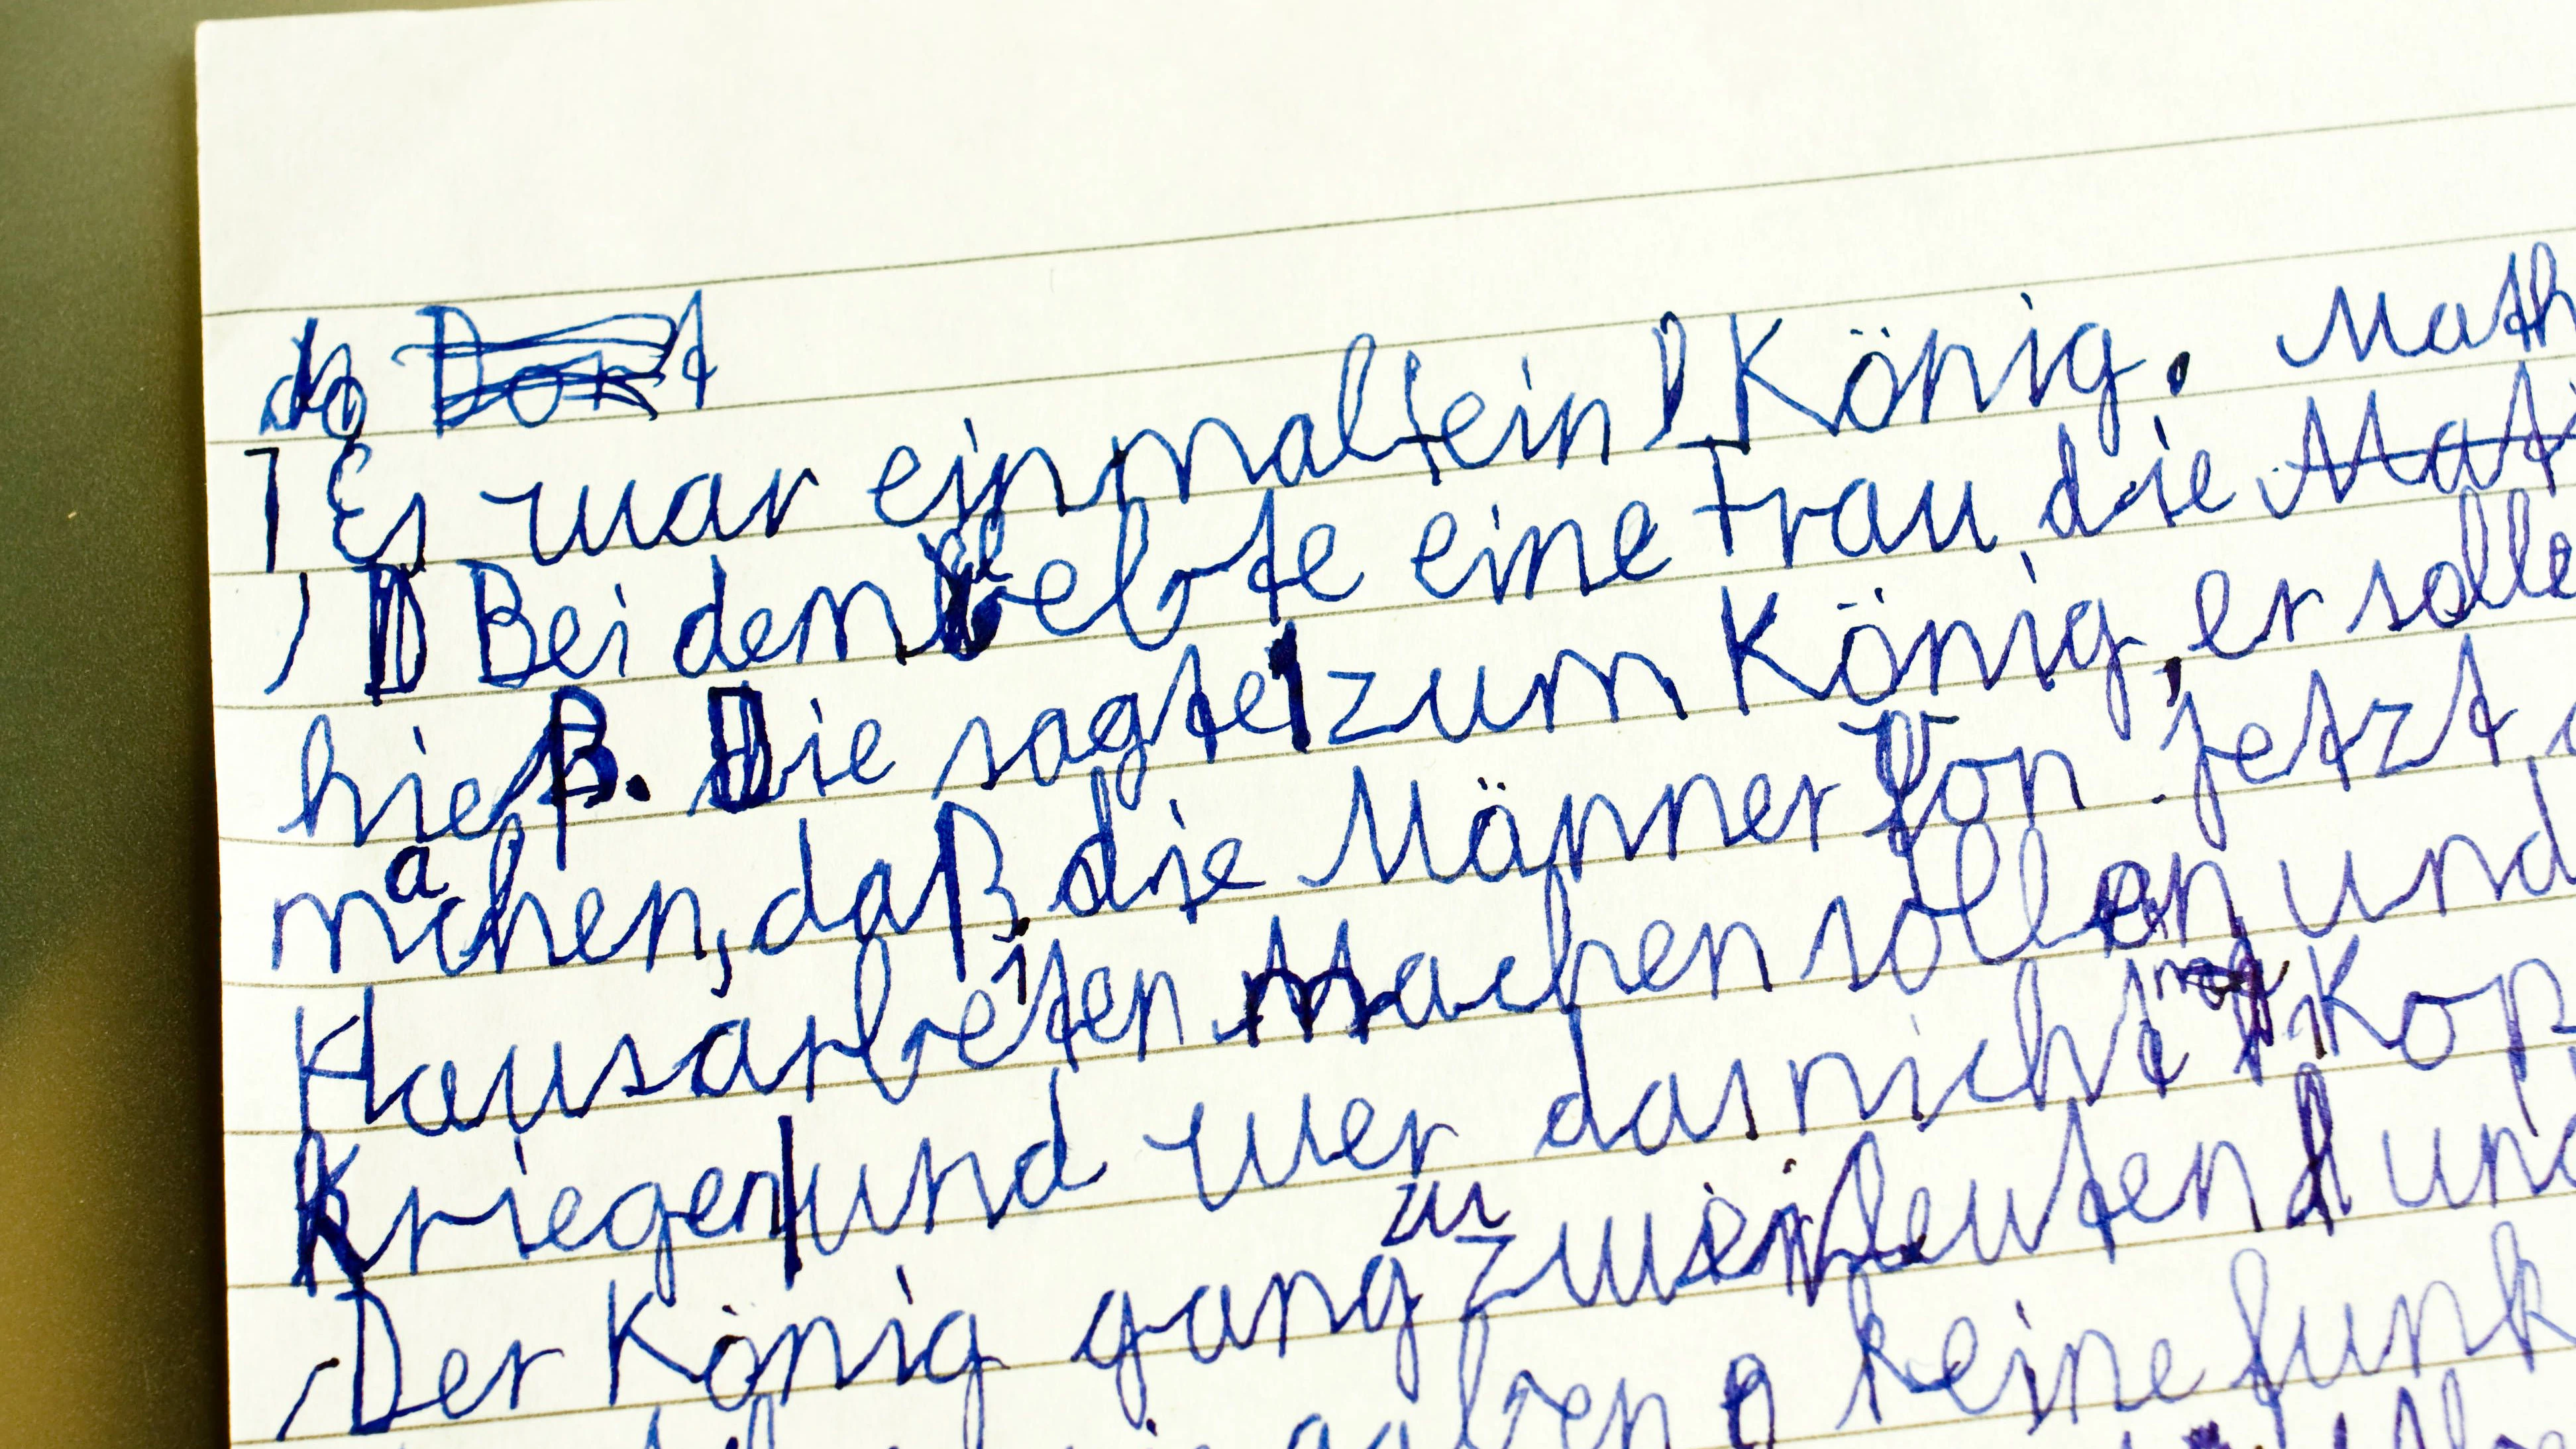 Es war einmal ein König. Math
Bei dem lebte eine Frau die Mat
hieß. Die sagte zum König, er solle
machen, daß die Männer von jetzt
Hausarbeiten Machen sollen und
Kriegen und wer das nicht mag Kop
Der König gang zu zwei leuten und
gaben keine funk